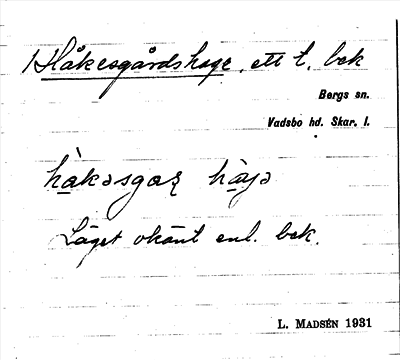 1) Håkesgårdshage, ett t. bek
Bergs sn.
Vadsbo hd. Skar. l.
hàkəsgaʀ hàɣə
Läget okänt enl. bek.
L. MADSÉN 1931